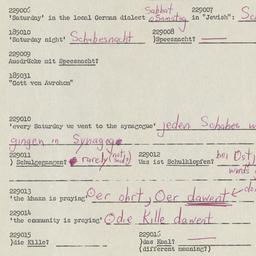 229006 Sabbat 229007
'Saturday' in the local German dialect Samstag in "Jewish": Sc
185010 229008
'Saturday night' Schabesnacht )Speesnacht?
229009
Ausdrücke mit Speesnacht?
185031
"Gott von Avrohom"
229010
'every Saturday we went to the synagogue' jeden Schabes w
gingen in Synagoge
229011 229012 bei Ostj
) Schulgesangen? rarely Was ist Schulklopfen?
wurde
229013
'the khazn is praying' Der ohrt, Der dawent
229014
'the community is praying' die Kille dawent
229015 229016
)die Kille? )das Kaal?
(different meaning?)